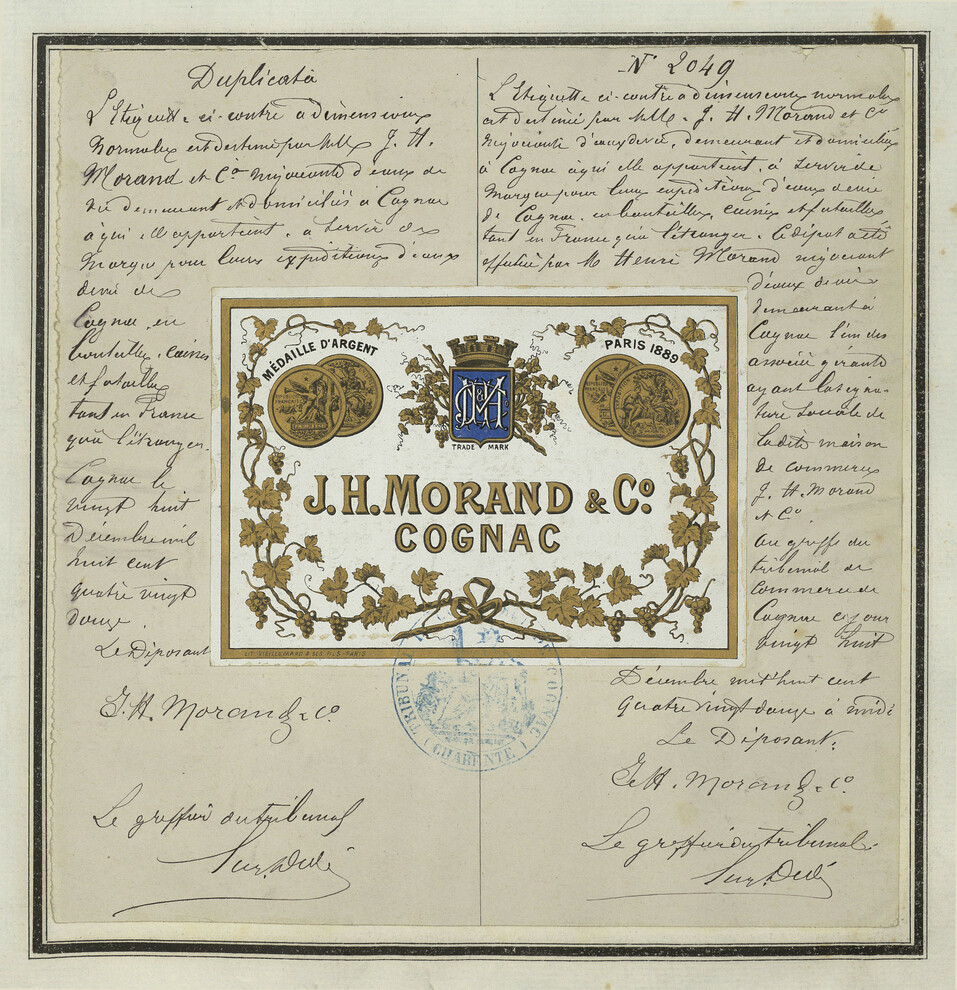 Duplicata
L'Etiquette ci-contre à dimensions
normales est destinée par MM. J. H.
Morand et Co négociants d'eaux de
vie demeurant et domiciliés à Cognac
à qui elle appartient, à servir de
marque pour leurs expéditions d'eaux
de vie de
Cognac, en
bouteilles, caisses
et futailles
tant en France
qu'à l'étranger.
Cognac le
vingt huit
Décembre mil
huit cent
quatre vingt
douze.
Le Déposant
J. H. Morand & Co.
Le greffier du tribunal
No 2049
L'Etiquette ci-contre à dimensions normales
est destinée par MM. J. H. Morand et Co
négociants d'eaux de vie, demeurant et domiciliés
à Cognac à qui elle appartient, à servir de
marque pour leurs expéditions d'eaux de vie
de Cognac, en bouteilles, caisses et futailles
tant en France qu'à l'étranger. Ce dépôt a été
effectué par M Henri Morand négociant
d'eaux de vie
demeurant à
Cognac l'un des
associés gérants
ayant la signa-
ture sociale de
la dite maison
de commerce
J. H. Morand
et Co.
au greffe du
tribunal de
commerce de
Cognac ce jour
vingt huit
Décembre mil huit cent
quatre vingt douze à midi
Le Déposant.
J. H. Morand & Co.
Le greffier du tribunal.
MÉDAILLE D'ARGENT
PARIS 1889
TRADE MARK
J.H. MORAND & Co.
COGNAC
LIT. VIEILLEMARD & SES FILS-PARIS
TRIBUNAL DE COGNAC
(CHARENTE)